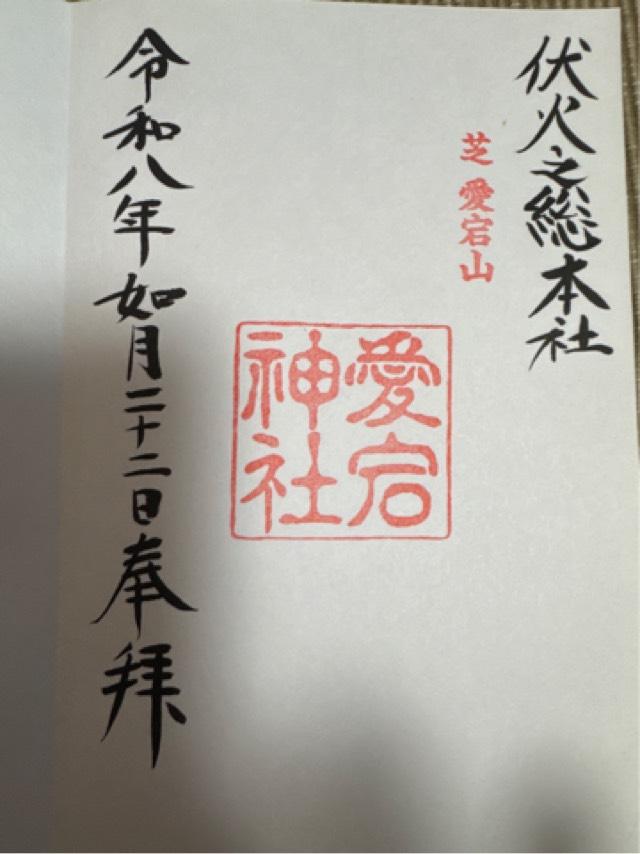 伏火之総本社
芝 愛宕山
愛宕
神社
令和八年如月二十二日奉拝